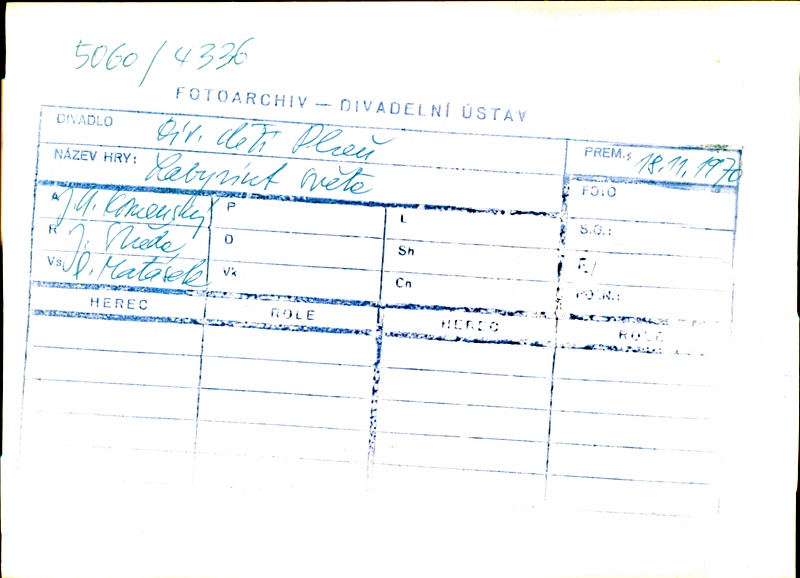 5060/4336
FOTOARCHIV — DIVADELNÍ ÚSTAV
DIVADLO Div. dětí Plzeň
PREM.: 18.11.1970
NÁZEV HRY: Labyrint světa
FOTO
A J.A. Komenský P L S.O.:
R J. Středa D Sh
Vs P. Matásek Vk Cn
HEREC ROLE HEREC ROLE